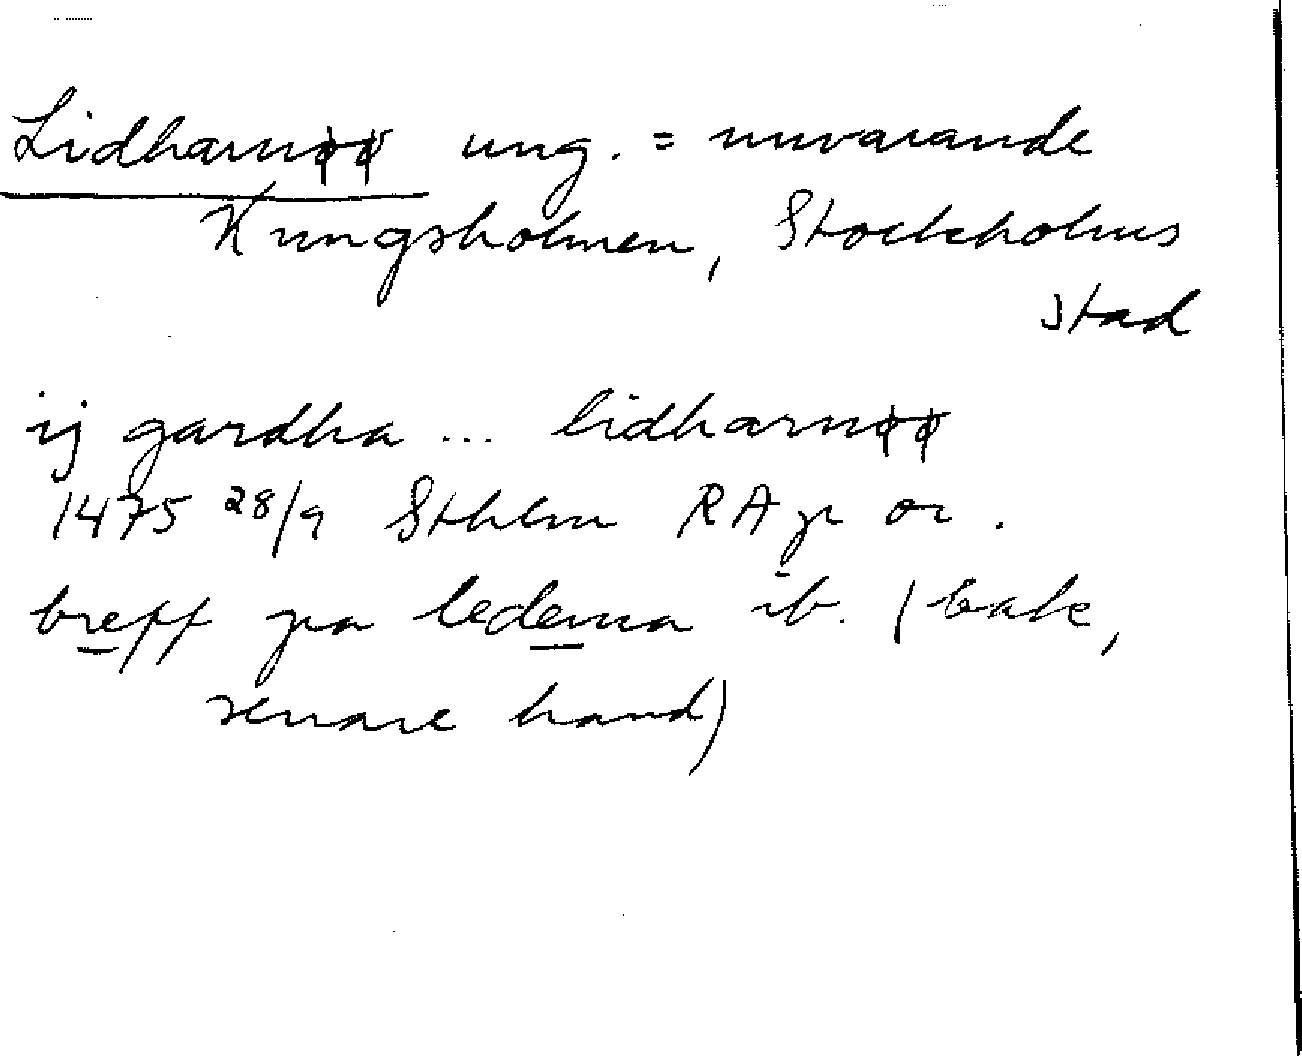 Lidharnøø ung. = nuvarande
Kungsholmen, Stockholms
stad
ij gardha ... lidharnøø
1475 28/9 Sthlm RAp or.
breff pa ledema ib. (bak,
senare hand)